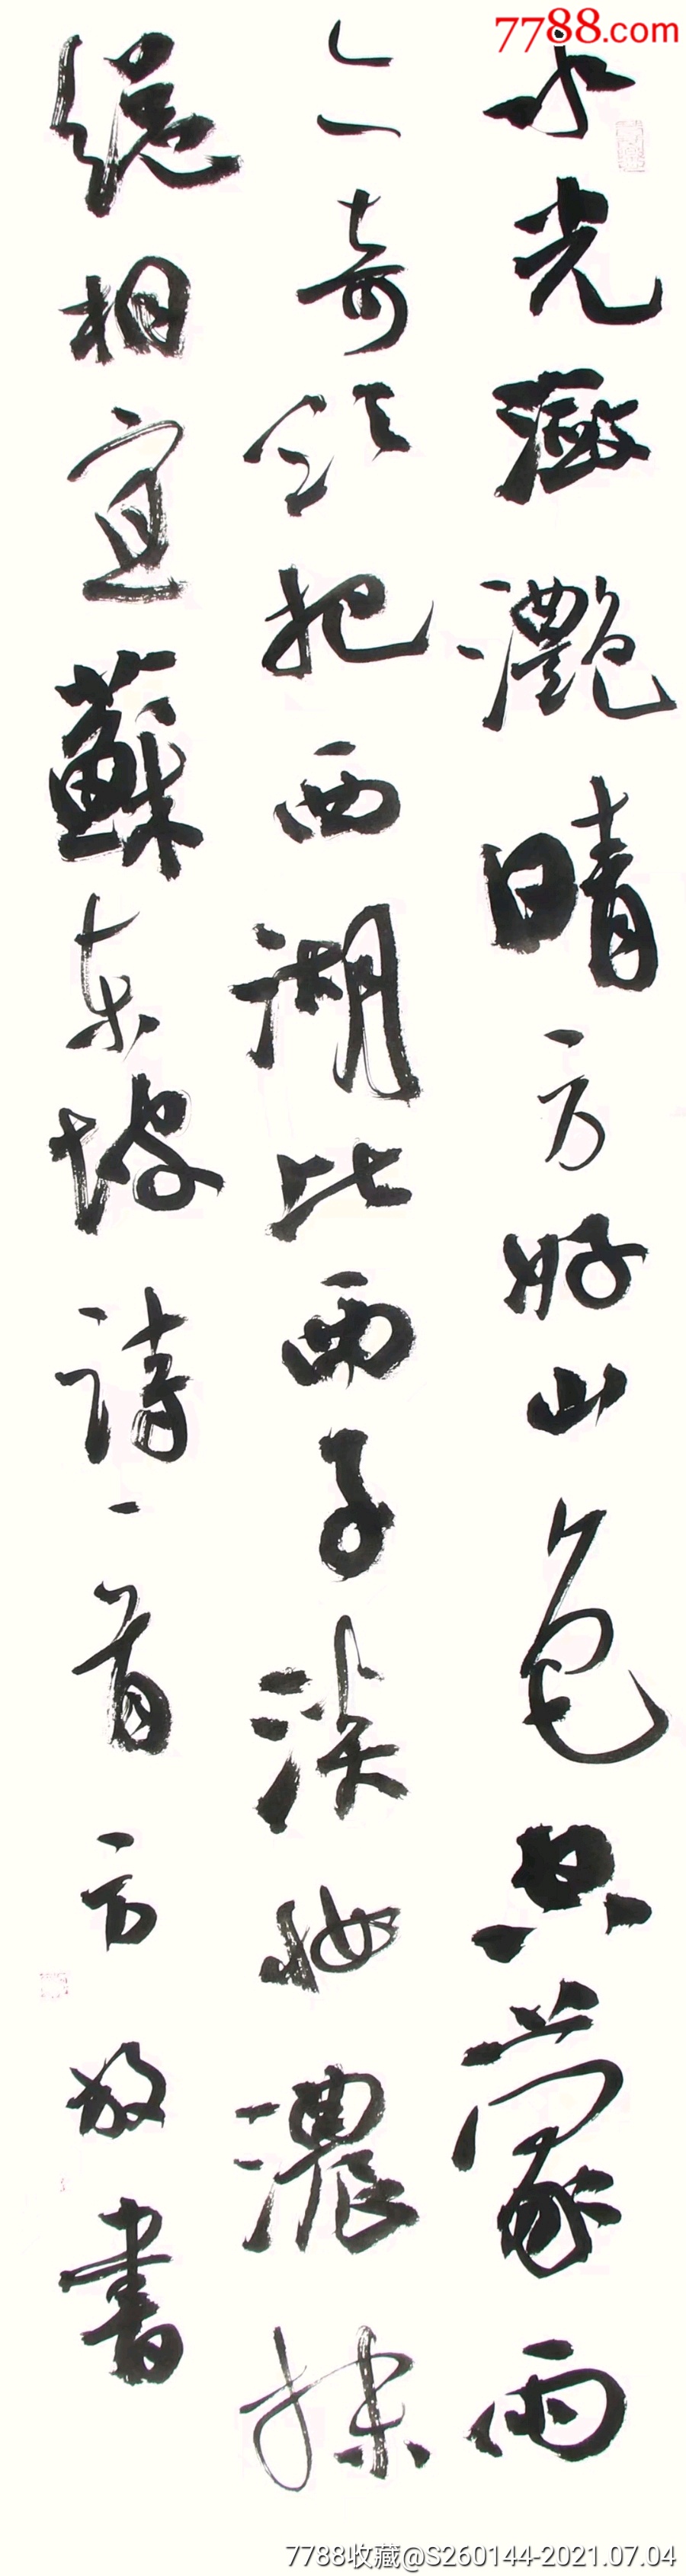 7788.com
水光瀲灧晴方好山色空蒙雨
亦奇欲把西湖比西子淡妆濃抹
總相宜蘇东坡詩一首方放書
7788收藏@S260144-2021.07.04